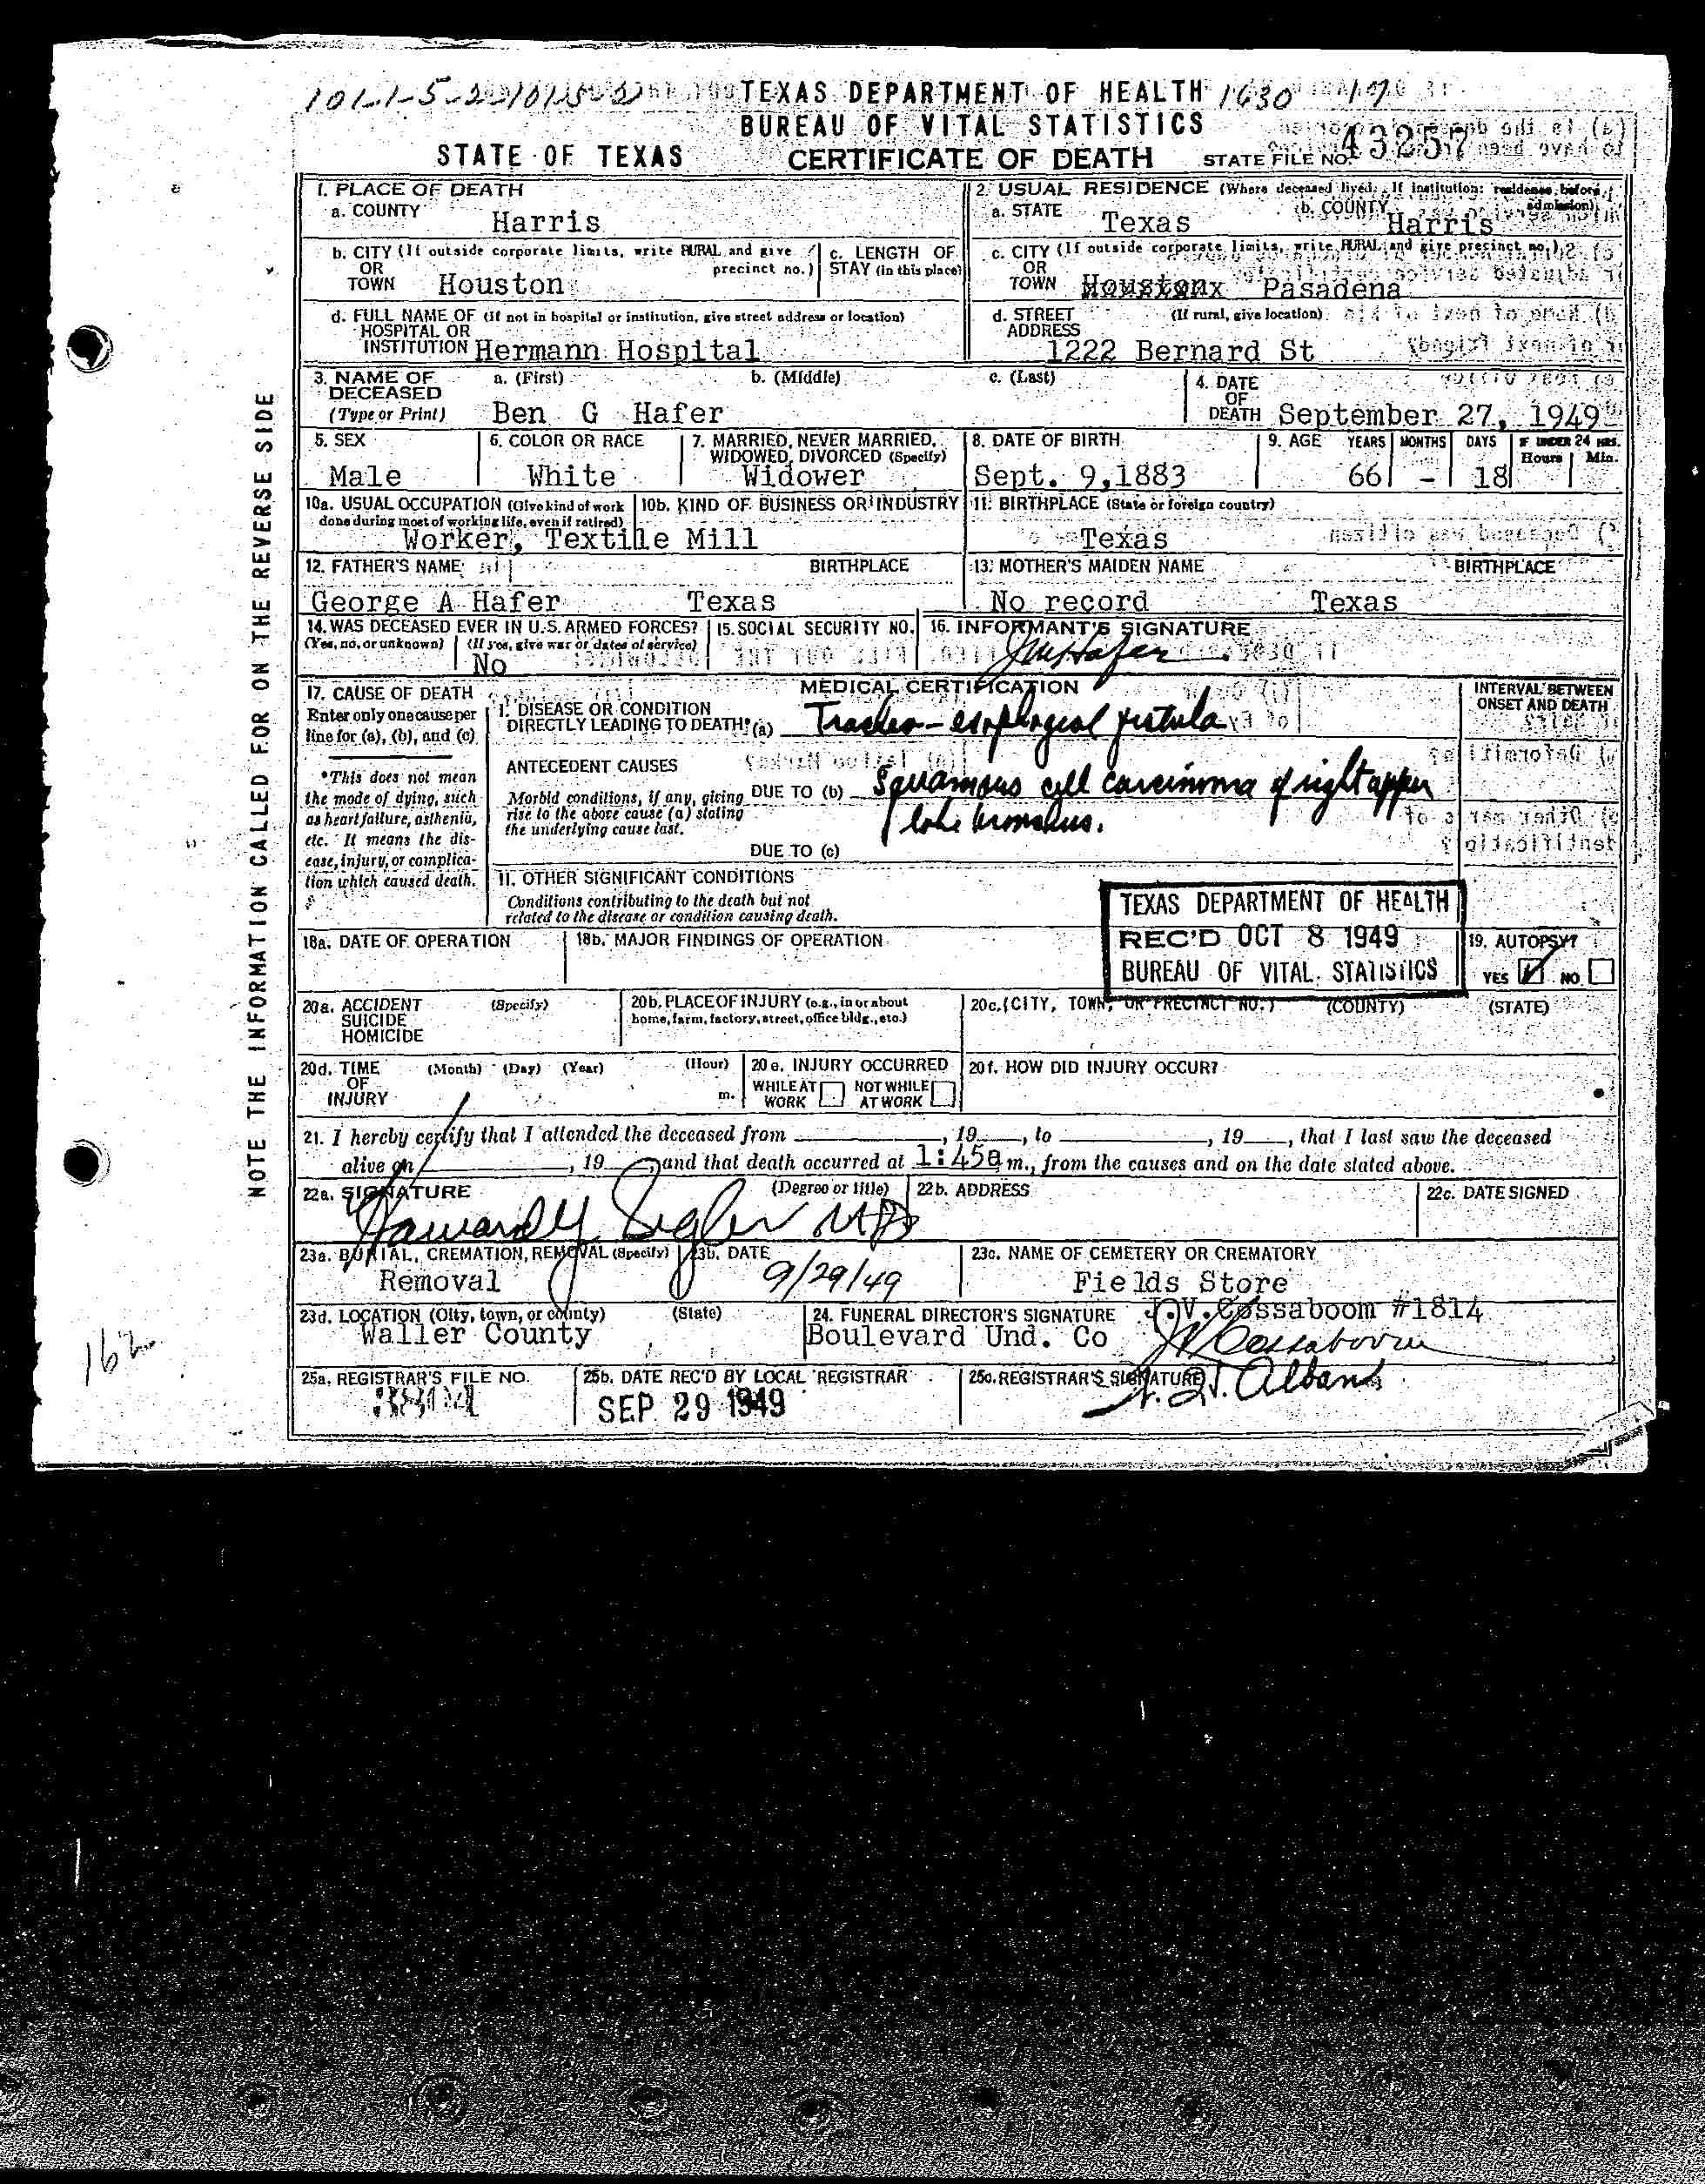 TEXAS DEPARTMENT OF HEALTH 1630
BUREAU OF VITAL STATISTICS
STATE OF TEXAS CERTIFICATE OF DEATH STATE FILE NO. 43257
1. PLACE OF DEATH
a. COUNTY Harris
2. USUAL RESIDENCE (Where deceased lived. If institution: residence before admission).
a. STATE Texas b. COUNTY Harris
b. CITY (If outside corporate limits, write RURAL and give precinct no.)
OR TOWN Houston
c. LENGTH OF STAY (in this place)
c. CITY (If outside corporate limits, write RURAL and give precinct no.)
OR TOWN Houstonx Pasadena
d. FULL NAME OF (If not in hospital or institution, give street address or location)
HOSPITAL OR
INSTITUTION Hermann Hospital
d. STREET (If rural, give location)
ADDRESS 1222 Bernard St
3. NAME OF DECEASED (Type or Print)
a. (First) b. (Middle) c. (Last)
Ben G Hafer
4. DATE OF DEATH September 27, 1949
5. SEX Male
6. COLOR OR RACE White
7. MARRIED, NEVER MARRIED, WIDOWED, DIVORCED (Specify) Widower
8. DATE OF BIRTH Sept. 9,1883
9. AGE YEARS MONTHS DAYS IF UNDER 24 HRS. Hours Min.
66 - 18
10a. USUAL OCCUPATION (Give kind of work done during most of working life, even if retired)
10b. KIND OF BUSINESS OR INDUSTRY
Worker, Textile Mill
11. BIRTHPLACE (State or foreign country)
Texas
12. FATHER'S NAME BIRTHPLACE
George A Hafer Texas
13. MOTHER'S MAIDEN NAME BIRTHPLACE
No record Texas
14. WAS DECEASED EVER IN U.S. ARMED FORCES?
(Yes, no, or unknown) (If yes, give war or dates of service)
No
15. SOCIAL SECURITY NO.
16. INFORMANT'S SIGNATURE
Hafer
17. CAUSE OF DEATH
Enter only one cause per line for (a), (b), and (c)
*This does not mean the mode of dying, such as heart failure, asthenia, etc. It means the disease, injury, or complication which caused death.
MEDICAL CERTIFICATION
INTERVAL BETWEEN ONSET AND DEATH
I. DISEASE OR CONDITION
DIRECTLY LEADING TO DEATH* (a) Tracheo-esophageal fistula
ANTECEDENT CAUSES
Morbid conditions, if any, giving rise to the above cause (a) stating the underlying cause last.
DUE TO (b) Squamous cell carcinoma of right upper
lobe bronchus.
DUE TO (c)
II. OTHER SIGNIFICANT CONDITIONS
Conditions contributing to the death but not
related to the disease or condition causing death.
TEXAS DEPARTMENT OF HEALTH
REC'D OCT 8 1949
BUREAU OF VITAL STATISTICS
18a. DATE OF OPERATION
18b. MAJOR FINDINGS OF OPERATION
19. AUTOPSY?
YES NO
20a. ACCIDENT (Specify)
SUICIDE
HOMICIDE
20b. PLACE OF INJURY (e.g., in or about home, farm, factory, street, office bldg., etc.)
20c. (CITY, TOWN, OR PRECINCT NO.) (COUNTY) (STATE)
20d. TIME (Month) (Day) (Year) (Hour)
OF
INJURY m.
20e. INJURY OCCURRED
WHILE AT WORK NOT WHILE AT WORK
20f. HOW DID INJURY OCCUR?
21. I hereby certify that I attended the deceased from , 19 , to , 19 , that I last saw the deceased
alive on , 19 , and that death occurred at 1:45a m., from the causes and on the date stated above.
22a. SIGNATURE (Degree or title)
Sigler MD
22b. ADDRESS
22c. DATE SIGNED
23a. BURIAL, CREMATION, REMOVAL (Specify)
Removal
23b. DATE
9/29/49
23c. NAME OF CEMETERY OR CREMATORY
Fields Store
23d. LOCATION (City, town, or county) (State)
Waller County
24. FUNERAL DIRECTOR'S SIGNATURE J.V.Cossaboom #1814
Boulevard Und. Co JV Cossaboom
25a. REGISTRAR'S FILE NO.
25b. DATE REC'D BY LOCAL REGISTRAR
SEP 29 1949
25c. REGISTRAR'S SIGNATURE
Albans
NOTE THE INFORMATION CALLED FOR ON THE REVERSE SIDE